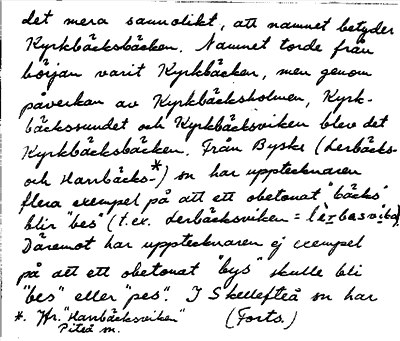 det mera sannolikt, att namnet betyder
Kyrkbäcksbäcken. Namnet torde från
början varit Kyrkbäcken, men genom
påverkan av Kyrkbäcksholmen, Kyrk-
bäckssundet och Kyrkbäcksviken blev det
Kyrkbäcksbäcken. Från Byske (Lerbäcks-
och Harrbäcks-*) sn har upptecknaren
flera exempel på att ett obetonat "bäcks"
blir "bes" (t.ex. Lerbäcksviken =
Däremot har upptecknaren ej exempel
på att ett obetonat "bys" skulle bli
"bes" eller "pes". I Skellefteå sn har
*. Jfr. "Harrbäcksviken" (Forts.)
Piteå sn.